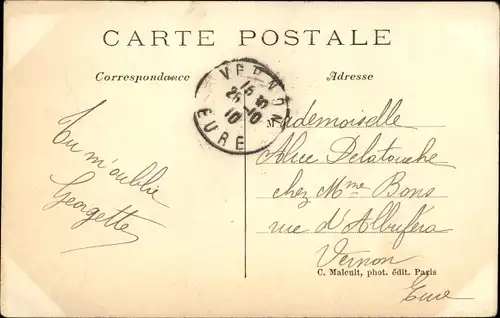 CARTE POSTALE
Correspondance
Adresse
VERNON
EURE
Tu m'oublie
Georgette
Mademoiselle
Alice Delatouche
chez Mme Bons
rue d'Albuféra
Vernon
C. Malcuit, phot. édit. Paris
Eure